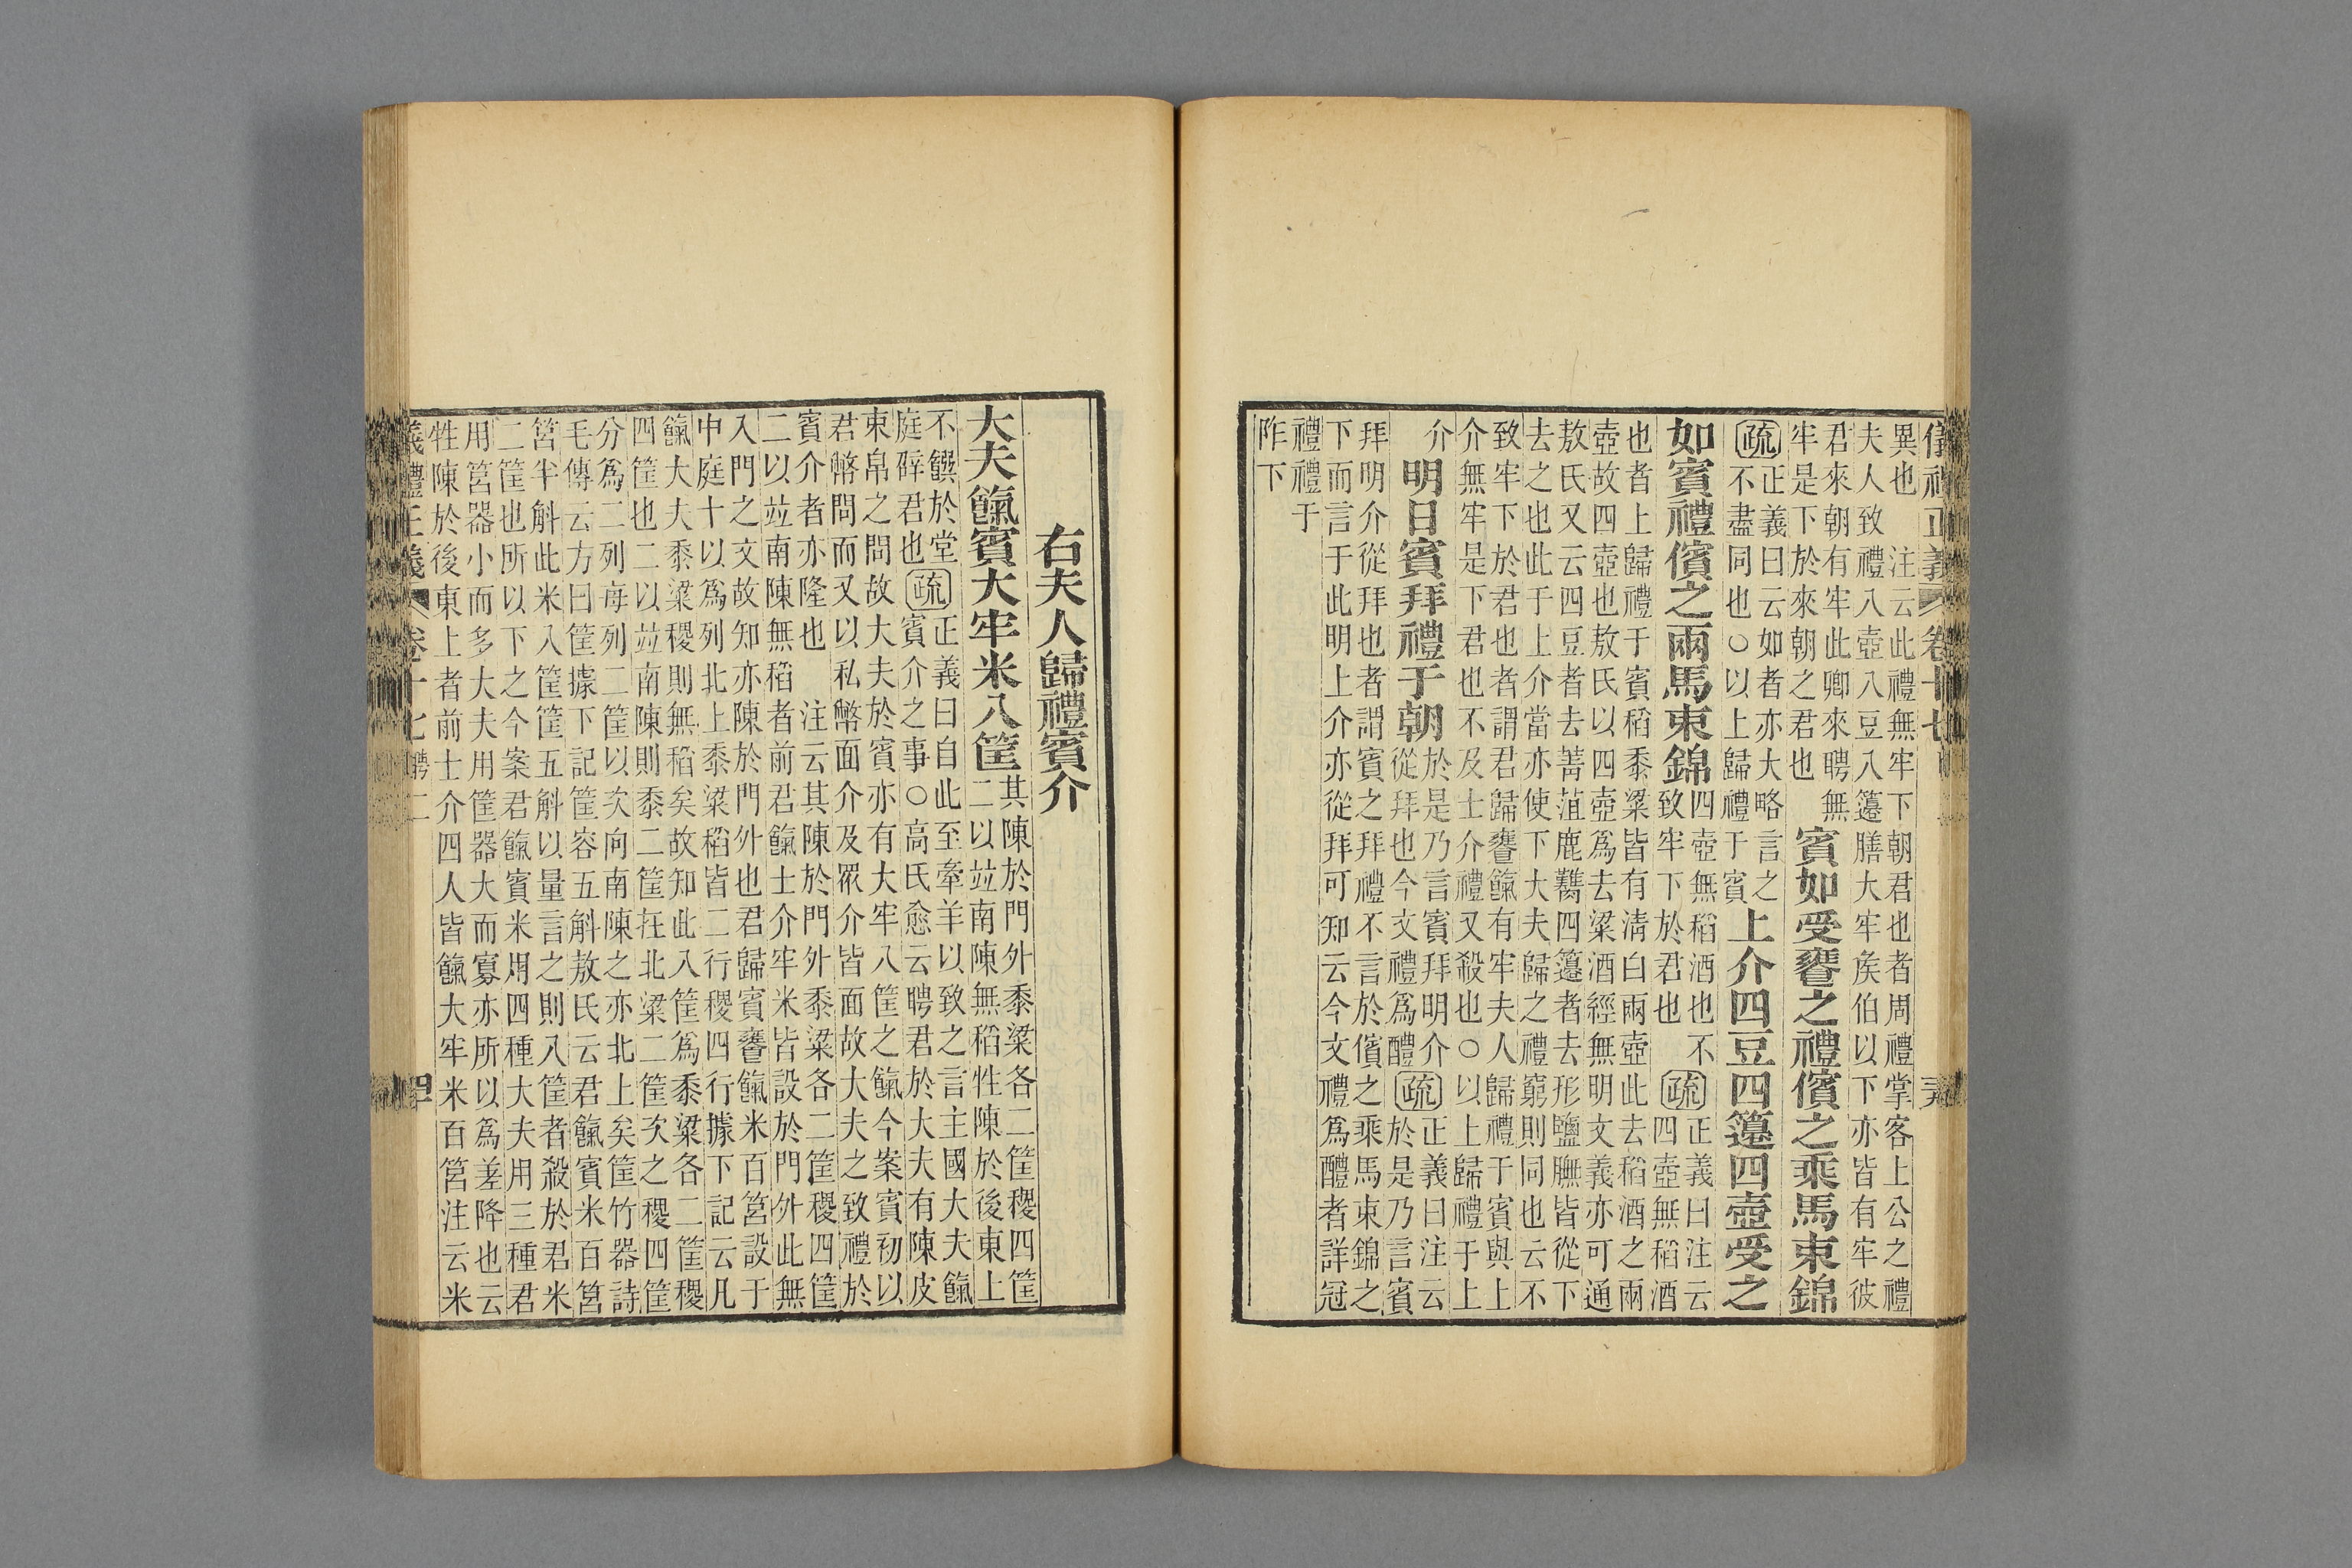 儀禮正義 卷十七
異也　注云此禮無牢下朝君也者周禮掌客上公之禮
夫人致禮八壺八豆八籩膳大牢矦伯以下亦皆有牢彼
君來朝有牢此卿來聘無
牢是下於來朝之君也
賓如受饔之禮儐之乘馬束錦
疏正義曰云如者亦大略言之
不盡同也○以上歸禮于賓
上介四豆四籩四壺受之
如賓禮儐之兩馬束錦
四壺無稻酒也不
致牢下於君也
疏正義曰注云
四壺無稻酒
也者上歸禮于賓稻黍粱皆有淸白兩壺此去稻酒之兩
壺故四壺也敖氏以四壺爲去粱酒經無明文義亦可通
敖氏又云四豆者去菁菹鹿臡四籩者去形鹽膴皆從下
去之也此于上介當亦使下大夫歸之禮窮則同也云不
致牢下於君也者謂君歸饔餼有牢夫人歸禮于賓與上
介無牢是下君也不及士介禮又殺也○以上歸禮于上
介
明日賓拜禮于朝
於是乃言賓拜明介
從拜也今文禮爲醴
疏正義曰注云
於是乃言賓
拜明介從拜也者謂賓之拜禮不言於儐之乘馬束錦之
下而言于此明上介亦從拜可知云今文禮爲醴者詳冠
禮禮于
阼下
右夫人歸禮賓介
大夫餼賓大牢米八筐
其陳於門外黍粱各二筐稷四筐
二以竝南陳無稻牲陳於後東上
不饌於堂
庭辟君也
疏正義曰自此至牽羊以致之言主國大夫餼
賓介之事○高氏愈云聘君於大夫有陳皮
束帛之問故大夫於賓亦有大牢八筐之餼今案賓初以
君幣問而又以私幣面介及眾介皆面故大夫之致禮於
賓介者亦隆也　注云其陳於門外黍粱各二筐稷四筐
二以竝南陳無稻者前君餼士介牢米皆設於門外此無
入門之文故知亦陳於門外也君歸賓饔餼米百筥設于
中庭十以爲列北上黍粱稻皆二行稷四行據下記云凡
餼大夫黍粱稷則無稻矣故知此八筐爲黍粱各二筐稷
四筐也二以竝南陳則黍二筐在北粱二筐次之稷四筐
分爲二列每列二筐以次向南陳之亦北上矣筐竹器詩
毛傳云方曰筐據下記筐容五斛敖氏云君餼賓米百筥
筥半斛此米八筐筐五斛以量言之則八筐者殺於君米
二筐也所以下之今案君餼賓米用四種大夫用三種君
用筥器小而多大夫用筐器大而寡亦所以爲差降也云
牲陳於後東上者前士介四人皆餼大牢米百筥注云米